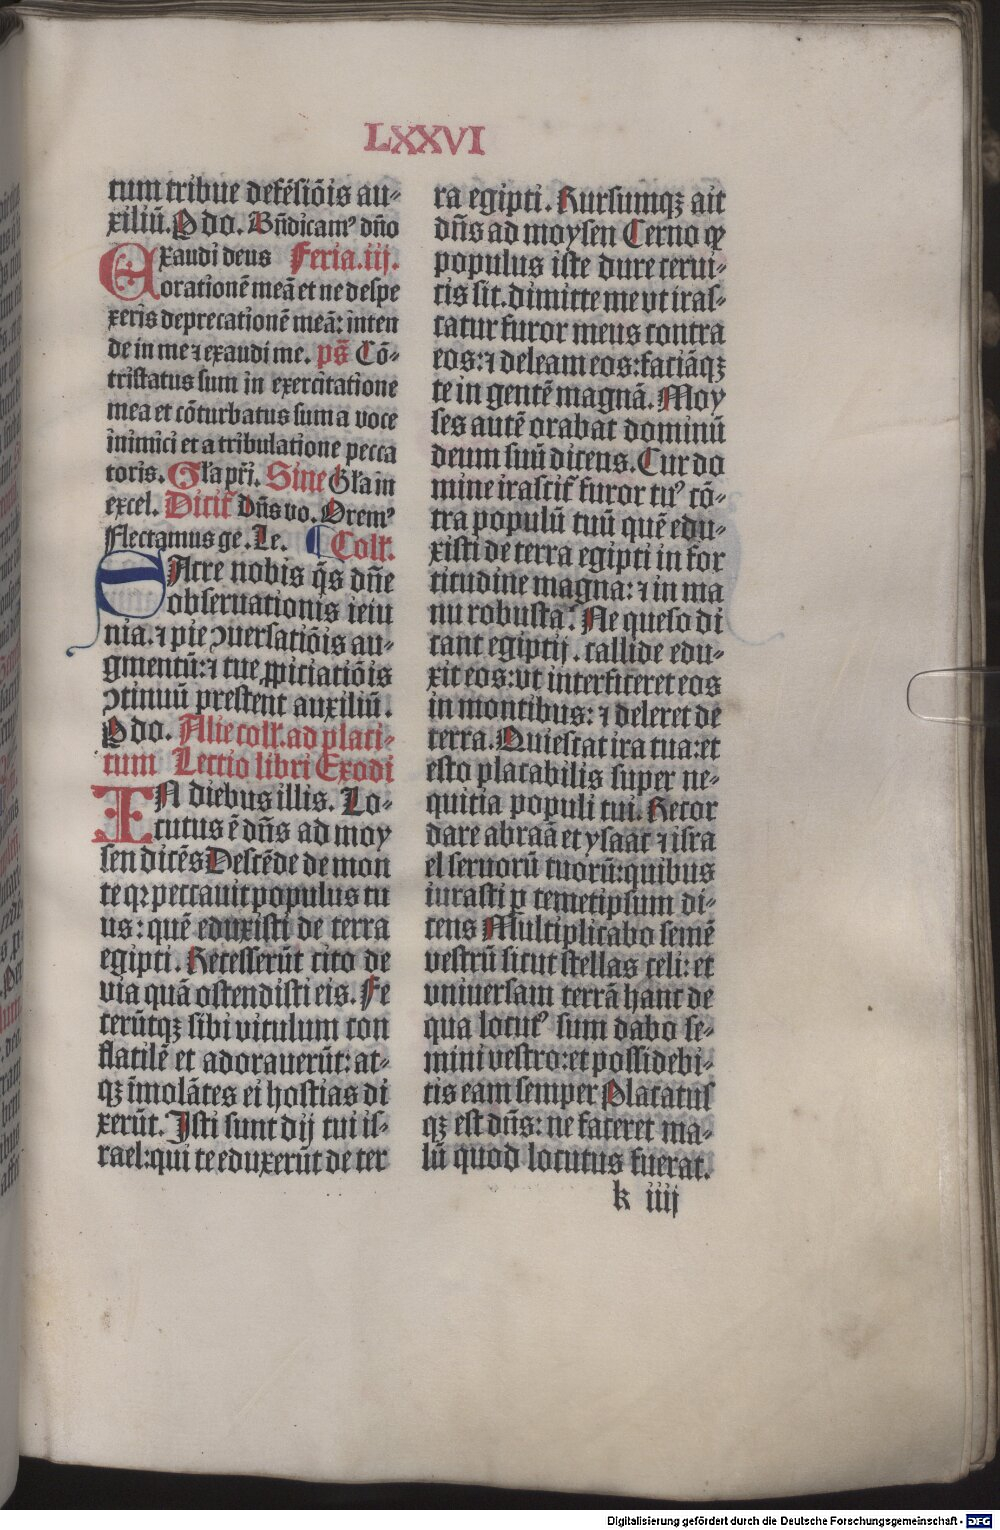 LXXVI
tum tribue defēsiōis au⸗
xiliū. Pdo. Bn̄dicamꝰ dn̄o
Exaudi deus Feria.iij.
orationē meā et ne despe
xeris deprecationē meā: inten
de in me ⁊ exaudi me. ps̄ Cō⸗
tristatus sum in exercitatione
mea et cōturbatus sum a voce
inimici et a tribulatione pecca
toris. Gl'a pr̄i. Sine Gl'a in
excel. Dicit᷑ dn̄s vo. Oremꝰ
Flectamus ge. Le. Coll'.
SAcre nobis q̄s dn̄e
obseruationis ieiu
nia. ⁊ pie ꝯuersatiōis au⸗
gmentū: ⁊ tue ꝓpiciatiōis
ꝯtinuū prestent auxiliū.
Pdo. Alie coll'. ad placi⸗
tum Lectio libri Exodi
IN diebus illis. Lo⸗
cutus ē dn̄s ad moy
sen dicēs Descēde de mon
te qꝛ peccauit populus tu
us: quē eduxisti de terra
egipti. Recesserūt cito de
via quā ostendisti eis. Fe
cerūtqꝫ sibi vitulum con
flatilē et adorauerūt: at⸗
qꝫ īmolātes ei hostias di
xerūt. Isti sunt dij tui is⸗
rael: qui te eduxerūt de ter
ra egipti. Rursumqꝫ ait
dn̄s ad moysen Cerno ꝙ
populus iste dure cerui⸗
cis sit. dimitte me vt iras⸗
catur furor meus contra
eos: ⁊ deleam eos: faciāqꝫ
te in gentē magnā. Moy
ses autē orabat dominū
deum suū dicens. Cur do
mine irascit᷑ furor tuꝰ cō⸗
tra populū tuū quē edu⸗
xisti de terra egipti in for
titudine magna: ⁊ in ma
nu robusta. Ne queso di
cant egiptij. callide edu⸗
xit eos: vt interficeret eos
in montibus: ⁊ deleret de
terra. Quiescat ira tua: et
esto placabilis super ne⸗
quitia populi tui. Recor
dare abraā et ysaac ⁊ isra
el seruorū tuorū: quibus
iurasti ꝑ temetipsum di⸗
cens Multiplicabo semē
vestrū sicut stellas celi: et
vniuersam terrā hanc de
qua locutꝰ sum dabo se⸗
mini vestro: et possidebi⸗
tis eam semper Placatus
qꝫ est dn̄s: ne faceret ma⸗
lū quod locutus fuerat.
k iiij
Digitalisierung gefördert durch die Deutsche Forschungsgemeinschaft - DFG